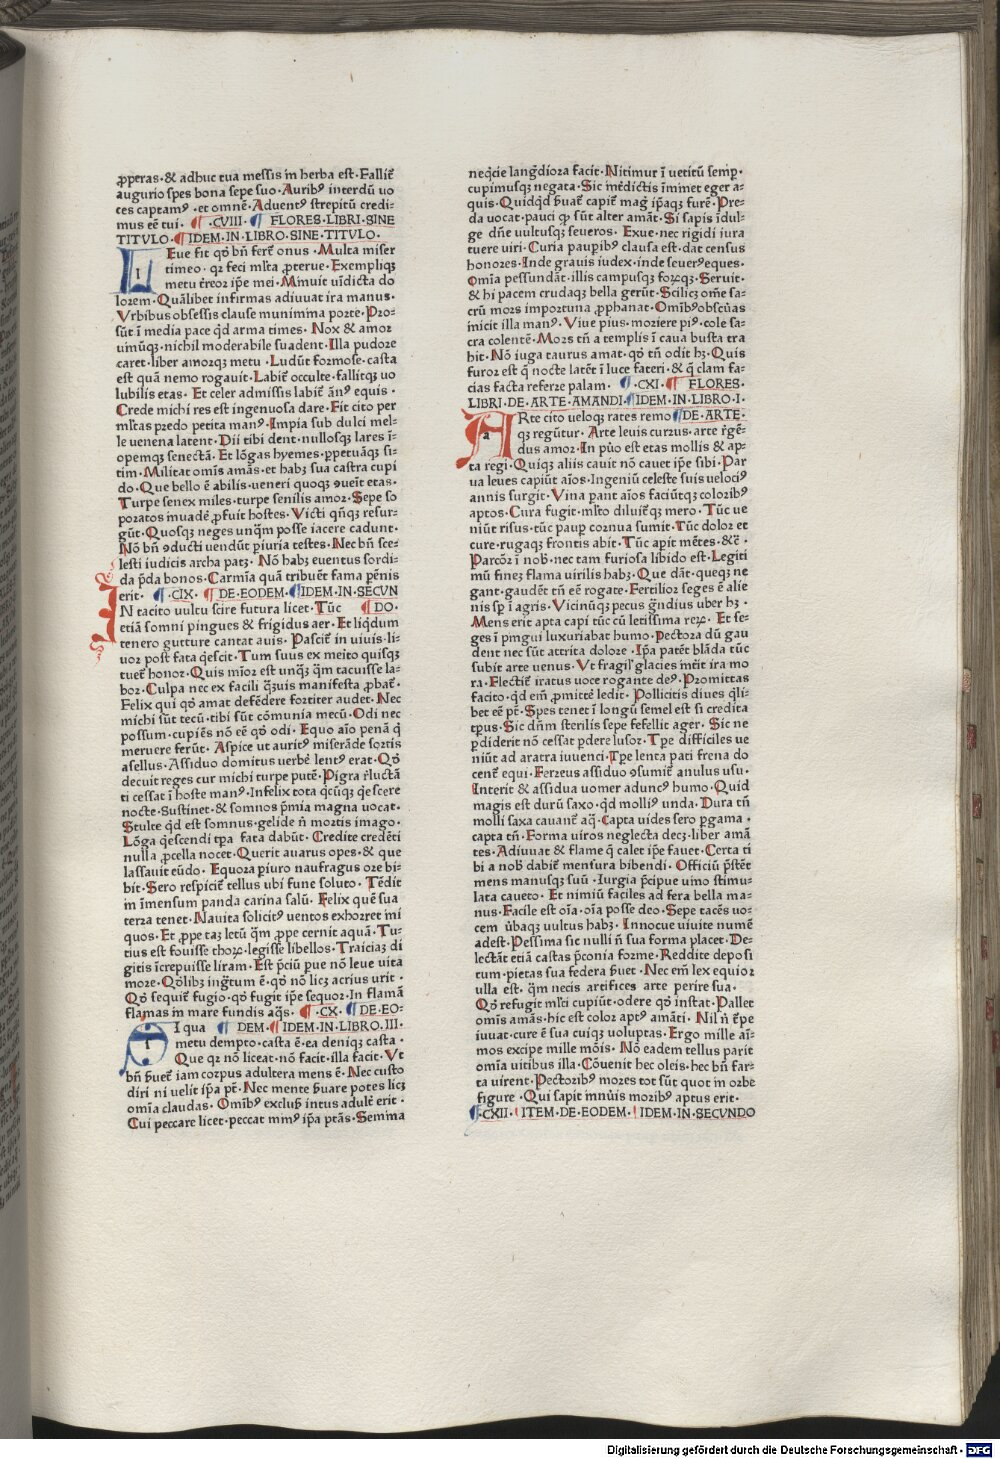 ꝓperas·& adhuc tua messis in herba est·Fallit᷑
augurio spes bona sepe suo·Aurib⁹ interdū uo
ces captam⁹·et omnē·Aduent⁹ strepitū credi-
mus eē tui· ¶·CVIII·¶ FLORES·LIBRI·SINE
TITVLO·¶IDEM·IN·LIBRO·SINE·TITVLO·
LEue fit qd̓ bn̄ fert᷑ onus·Multa miser
timeo·qꝛ feci ml̓ta ꝓterue·Exempliqꝫ
metu t᷑reor ip̄e mei·Minuit uīdicta do
lorem·Quālibet infirmas adiuuat ira manus·
Vrbibus obsessis clause munimina porte·Pro-
sūt ī media pace qd̓ arma times·Nox & amor
uinūqꝫ·nichil moderabile suadent·Illa pudore
caret·liber amorqꝫ metu·Ludūt formose·casta
est quā nemo rogauit·Labit᷑ occulte·fallitqꝫ uo
lubilis etas·Et celer admissis labit᷑ än⁹ equis·
Crede michi res est ingenuosa dare·Fit cito per
ml̓tas predo petita man⁹·Impia sub dulci mel-
le uenena latent·Dii tibi dent·nullosqꝫ lares ī-
opemqꝫ senectā·Et lōgas hyemes·ppetuāqꝫ si-
tim·Militat omīs amās·et habꝫ sua castra cupi
do·Que bello ē abilis·ueneri quoqꝫ ꝯueīt etas·
Turpe senex miles·turpe senilis amor·Sepe so
poratos inuadē ꝓfuit hostes·Victi qn̄qꝫ resur-
gūt·Quosqꝫ neges unq̄m posse iacere cadunt·
Nō bn̄ ꝯducti uendūt piuria testes·Nec bn̄ sce-
lesti iudicis archa patꝫ·Nō habꝫ euentus sordi-
da p̄da bonos·Carmīa quā tribuēt fama pēnis
erit· ¶·CIX·¶ DE·EODEM·¶IDEM·IN·SECVN
IN tacito uultu scire futura licet·Tūc ¶DO·
etiā somni pingues & frigidus aer·Et liq̓dum
tenero gutture cantat auis·Pascit᷑ in uiuis·li-
uor post fata q̓escit·Tum suus ex meito quisqꝫ
tuet᷑ honor·Quis mīor est unqꝫ q̄m tacuisse la-
bor·Culpa nec ex facili q̄zuis manifesta ꝓbat᷑·
Felix qui qd̓ amat defēdere fortiter audet·Nec
michi sūt tecū·tibi sūt cōmunia mecū·Odi nec
possum·cupiēs nō eē qd̓ odi·Equo aīo penā q̓
meruere ferūt·Aspice ut aurit⁹ miserāde sortis
asellus·Assiduo domitus uerbē lent⁹ erat·Qd̓
decuit reges cur michi turpe putē·Pigra r̓luctā
ti cessat ī hoste man⁹·Infelix tota qcūqꝫ q̓escere
nocte·Sustinet·& somnos p̄mia magna uocat·
Stulte qd̓ est somnus·gelide n̄ mortis imago·
Lōga q̓escendi tp̄a fata dabūt·Credite credēti
nulla ꝓcella nocet·Querit auarus opes·& que
lassauit eūdo·Equora piuro naufragus ore bi-
bit·Sero respicit᷑ tellus ubī fune soluto·Tēdit
in īmensum panda carina salū·Felix quē sua
terra tenet·Nauita solicit⁹ uentos exhorret ini
quos·Et ꝓpe taꝫ letū q̄m ꝓpe cernit aquā·Tu-
tius est fouisse thoꝝ·legisse libellos·Traiciaꝫ di
gitis īcrepuisse liram·Est p̄ciū pue nō leue uita
more·Qd̓libꝫ ingr̄tum ē·qd̓ nō licꝫ acrius urit·
Qd̓ sequit᷑ fugio·qd̓ fugit ip̄e sequor·In flamā
flamas in mare fundis aq̄s·¶·CX·¶DE·EO-
SI qua ¶ DEM·¶IDEM·IN·LIBRO·III·
metu dempto·casta ē·ea deniqꝫ casta·
Que qꝛ nō liceat·nō facit·illa facit·Vt
bn̄ ẜuet᷑ iam corpus adultera mens ē·Nec custo
diri ni uelit ip̄a pt̄·Nec mente ẜuare potes licꝫ
omīa claudas·Omīb⁹ exclus̄ intus adult᷑ erit·
Cui peccare licet·peccat min⁹ ip̄a ptās·Semina
neq̄cie lang̓diora facit·Nitimur ī uetitū semp̄·
cupimusqꝫ negata·Sic īt̓dictis īminet eger a-
quis·Quidq̓d ẜuat᷑ capit᷑ mag̓ ip̄aqꝫ furē·Pre-
da uocat·pauci qꝫ sūt alter amāt·Si sapis īdul-
ge dn̄e uultusqꝫ seueros·Exue·nec rigidi iura
tuere uiri·Curia paupib⁹ clausa est·dat census
honores·Inde grauis iudex·inde seuer⁹eques·
Omīa pessundāt·illis campusqꝫ foꝝqꝫ·Seruit·
& hi pacem crudaqꝫ bella gerūt·Scilicꝫ om̄e sa-
crū mors importuna ꝓphanat·Omīb⁹obscūas
inicit illa man⁹·Viue pius·moriere pi⁹·cole sa-
cra colentē·Mors tn̄ a templis ī caua busta tra
hit·Nō iuga taurus amat·qd̓ tn̄ odit hꝫ·Quis
furor est q̓ nocte latēt ī luce fateri·& q̓ clam fa-
cias facta referre palam· ¶·CXI·¶ FLORES·
LIBRI·DE·ARTE·AMANDI·¶IDEM·IN·LIBRO·I·
ARte cito ueloqꝫ rates remo ¶DE·ARTE·
qꝫ regūtur·Arte leuis currus·arte r̓gē-
dus amor·In pūo est etas mollis & ap-
ta regi·Quiqꝫ aliis cauit nō cauet ip̄e sibi·Par
ua leues capiūt aīos·Ingeniū celeste suis ueloci⁹
annis surgit·Vina parant aīos faciūtqꝫ colorib⁹
aptos·Cura fugit·ml̓to diluit᷑qꝫ mero·Tūc ue
niūt risus·tūc paup cornua sumit·Tūc dolor et
cure·rugaqꝫ frontis abit·Tūc apit mētes·&c̄·
Parcōr ī nob̄·nec tam furiosa libido est·Legiti
mū finez flama uirilis habꝫ·Que dāt·queqꝫ ne
gant·gaudēt tn̄ eē rogate·Fertilior seges ē alie
nis sp̄ ī agris·Vicinūqꝫ pecus gr̄ndius uber hꝫ·
Mens erit apta capi tūc cū letissima reꝝ·Et se-
ges ī pingui luxuriabat humo·Pectora dū gau
dent nec sūt attrita dolore·Ip̄a patēt blāda tūc
subit arte uenus·Vt fragil̓ glacies int̓it ira mo
ra·Flectit᷑ iratus uoce rogante de⁹·Promittas
facito·qd̓ em̄ ꝓmittē ledit·Pollicitis diues q̓li-
bet eē pt̄·Spes tenet ī longū semel est si credita
tp̄us·Sic dn̄m sterilis sepe fefellit ager·Sic ne
ꝑdiderit nō cessat pdere lusor·Tp̄e difficiles ue
niūt ad aratra iuuenci·Tp̄e lenta pati frena do
cent᷑ equi·Ferreus assiduo ꝯsumit᷑ anulus usu·
Interit & assidua uomer adunc⁹ humo·Quid
magis est durū saxo·qd̓ molli⁹ unda·Dura tn̄
molli saxa cauant᷑ aq̓·Capta uides sero pgama·
capta tn̄·Forma uiros neglecta decꝫ·liber amā
tes·Adiuuat & flame q̓ calet ip̄e fauet·Certa ti
bi a nob̄ dabit᷑ mensura bibendi·Officiū p̄stēt
mens manusqꝫ suū·Iurgia p̄cipue uino stimu-
lata caueto·Et nimiū faciles ad fera bella ma-
nus·Facile est oīa·oīa posse deo·Sepe tacēs uo-
cem ūbaqꝫ uultus habꝫ·Innocue uiuite numē
adest·Pessima sic nulli n̄ sua forma placet·De-
lectāt etiā castas p̄conia forme·Reddite deposi
tum·pietas sua federa ẜuet·Nec em̄ lex equior
ulla est·q̄m necis artifices arte perire sua·
Qd̓ refugit ml̓ti cupiūt·odere qd̓ instat·Pallet
omīs amās·hic est color apt⁹ amāti·Nil n̄ t᷑pe
iuuat·cure ē sua cuiqꝫ uoluptas·Ergo mille aī-
mos excipe mille mōis·Nō eadem tellus parit
omīa uitibus illa·Cōuenit hec oleis·hec bn̄ far-
ta uirent·Pectorib⁹ mores tot sūt quot in orbe
figure·Qui sapit innūis morib⁹ aptus erit·
¶·CXII·¶ITEM·DE·EODEM·¶IDEM·IN·SECVNDO
Digitalisierung gefördert durch die Deutsche Forschungsgemeinschaft - DFG